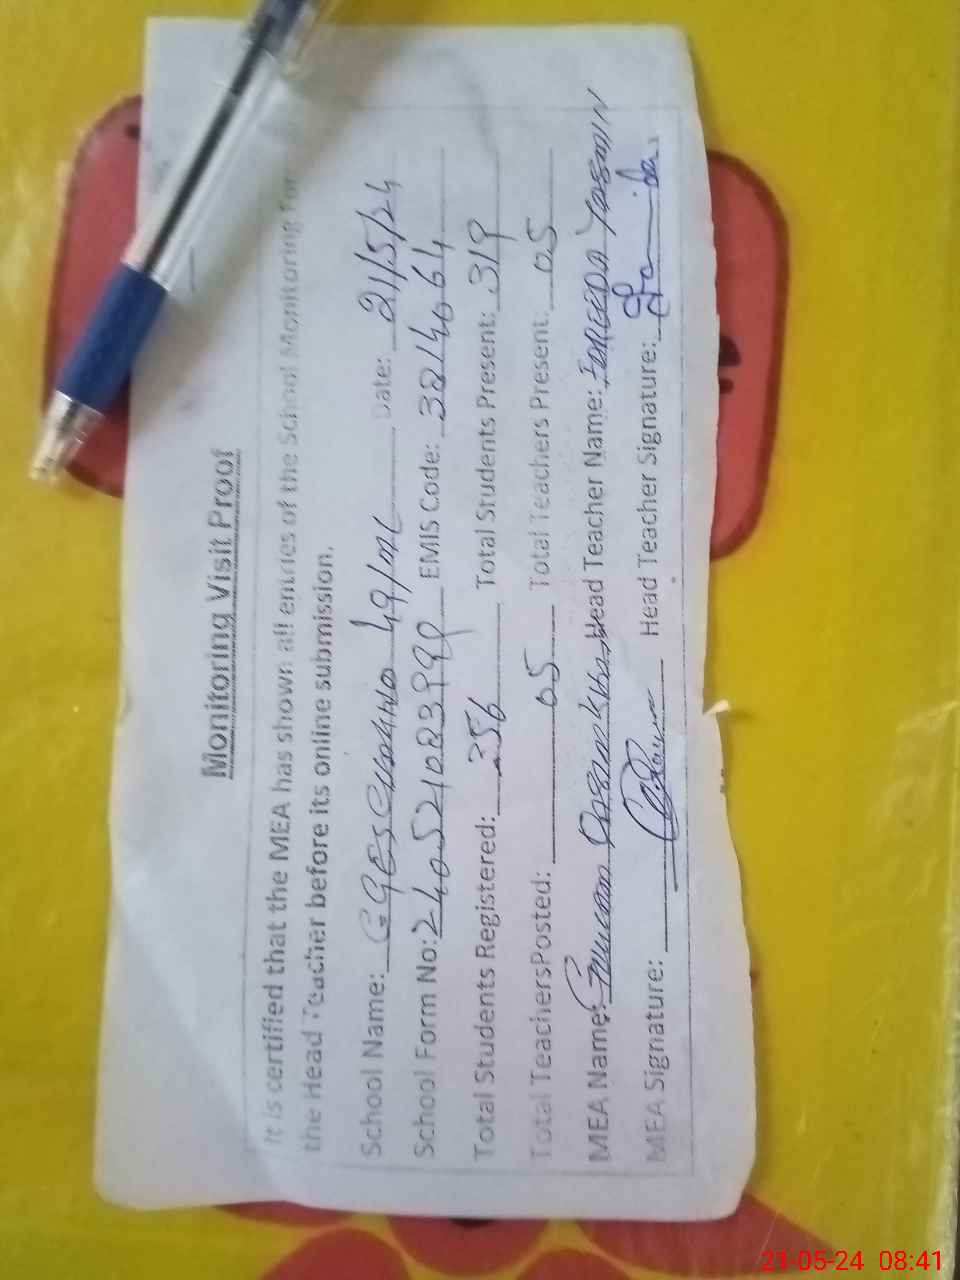 Monitoring Visit Proof
It is certified that the MEA has shown all entries of the School Monitoring For
the Head Teacher before its online submission.
School Name: GGES 49/ML Date: 21/5/24
School Form No: 24052102399 EMIS Code: 3214064
Total Students Registered: 356 Total Students Present: 319
Total TeachersPosted: 05 Total Teachers Present: 05
MEA Name: Head Teacher Name: FAREEDA YASMIN
MEA Signature: Head Teacher Signature:
21-05-24 08:41